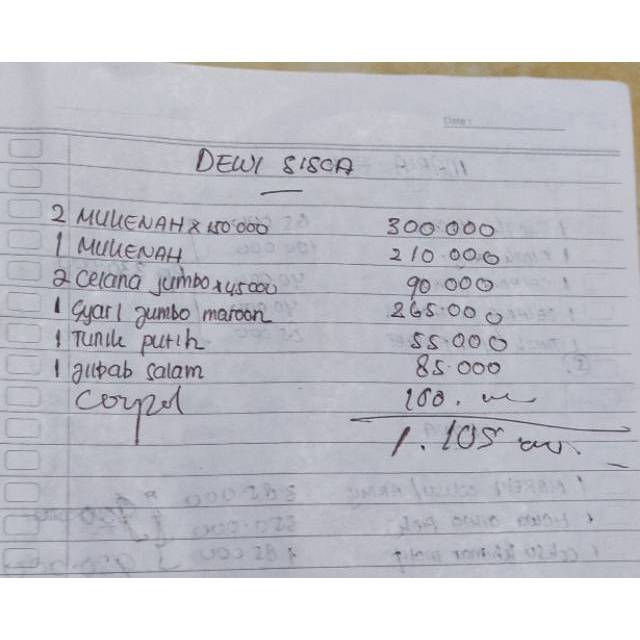 Date:
DEWI SISCA
2 MUKENAH x 150.000 300.000
1 MUKENAH 210.000
2 Celana jumbo x 45000 90.000
1 Syari jumbo maroon 265.000
1 Tunik putih 55.000
1 jilbab salam 85.000
100.
1.105